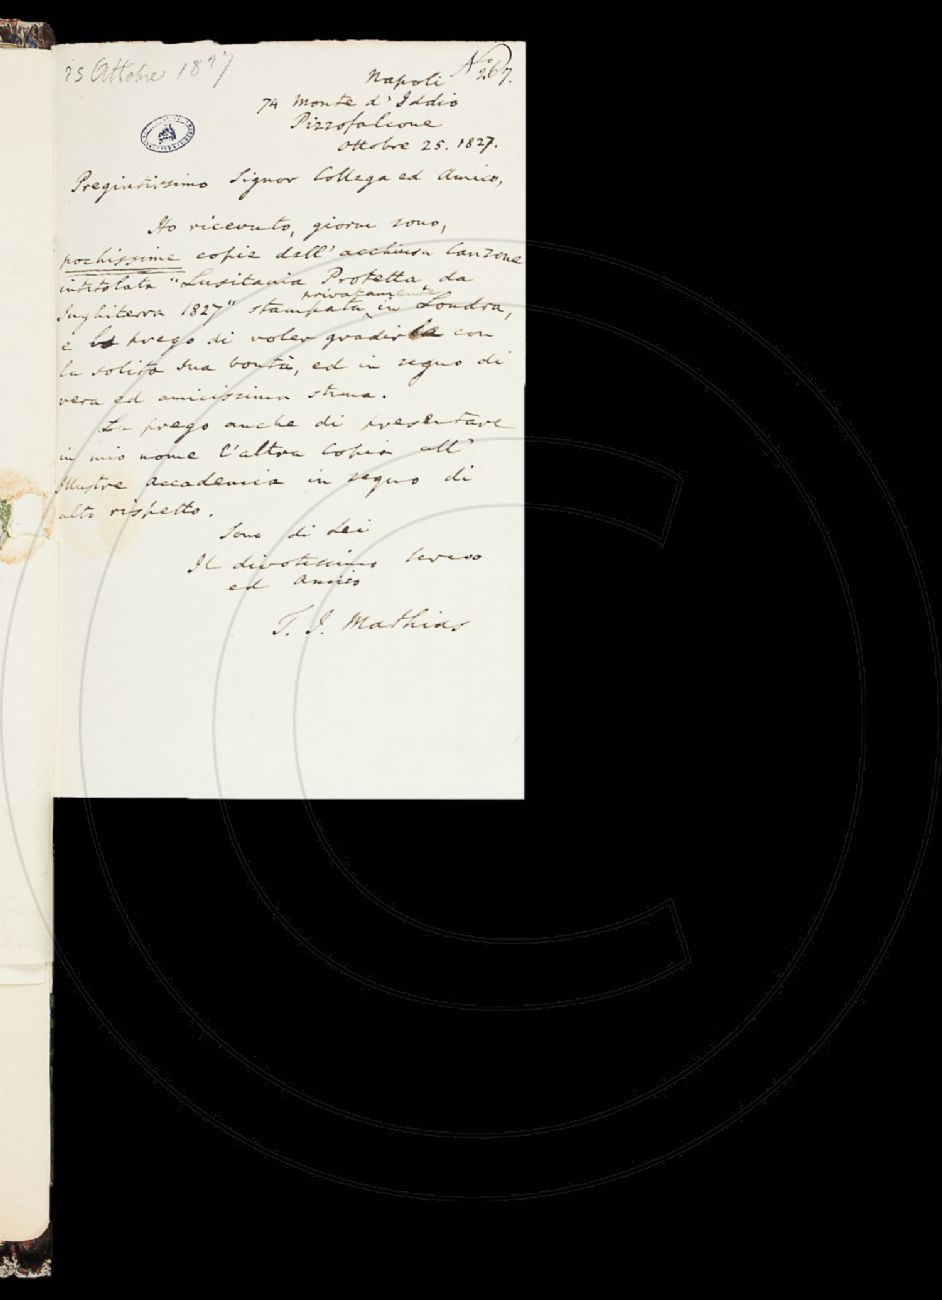 25 Ottobre 1827
No 267.
Napoli
74 Monte d'Iddio
Pizzofalcone
Ottobre 25. 1827.
Pregiatissimo Signor Collega ed Amico,
Ho ricevuto, giorni sono,
pochissime copie dell' acchiusa Canzone
intitolata "Lusitania Protetta da
Inghilterra 1827" stampata privatamente in Londra,
e la prego di voler gradirla con
la solita sua bontà, ed in segno di
vera ed amicissima stima.
La prego anche di presentare
in mio nome l'altra Copia all'
Illustre Accademia in segno di
alto rispetto.
Sono di Lei
Il divotissimo Servo
ed Amico
T. J. Mathias